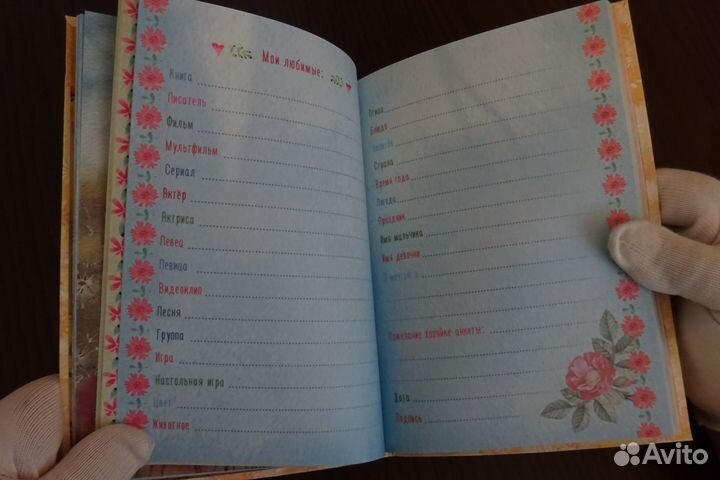 Мои любимые:
Книга
Писатель
Фильм
Мультфильм
Сериал
Актёр
Актриса
Певец
Певица
Видеоклип
Песня
Группа
Игра
Настольная игра
Цвет
Животное
Блюдо
Страна
Время года
Праздник
Имя мальчика
Имя девочки
Я мечтаю о
Пожелание хозяйке анкеты:
Дата
Подпись
Avito